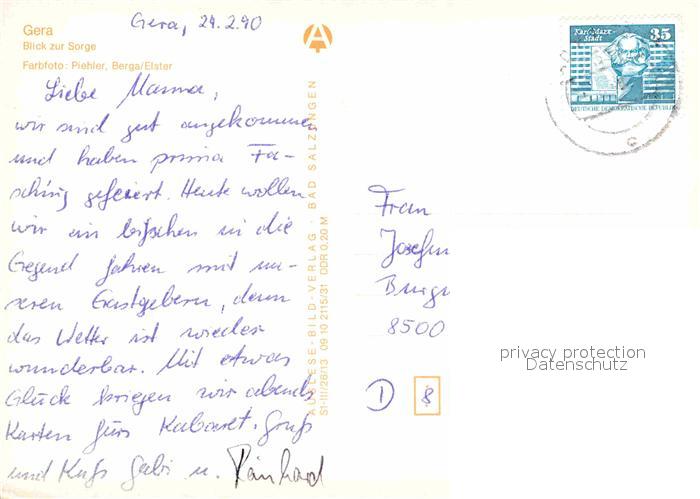 Gera, 24.2.90
Gera
Blick zur Sorge
Farbfoto: Piehler, Berga/Elster
Liebe Mama,
wir sind gut angekommen
und haben prima Fa-
sching gefeiert. Heute wollen
wir ein bißchen in die
Gegend fahren mit un-
seren Gastgebern, denn
das Wetter ist wieder
wunderbar. Mit etwas
Glück kriegen wir abends
Karten fürs Kabarett. Gruß
und Kuß Gabi u. Reinhard
AUSLESE-BILD-VERLAG · BAD SALZUNGEN
St-III/26/13 09 10 2115/31 DDR 0,20 M
A
Karl-Marx-
Stadt
35
DEUTSCHE DEMOKRATISCHE REPUBLIK
Frau
Burg
8500
D 8
privacy protection
Datenschutz